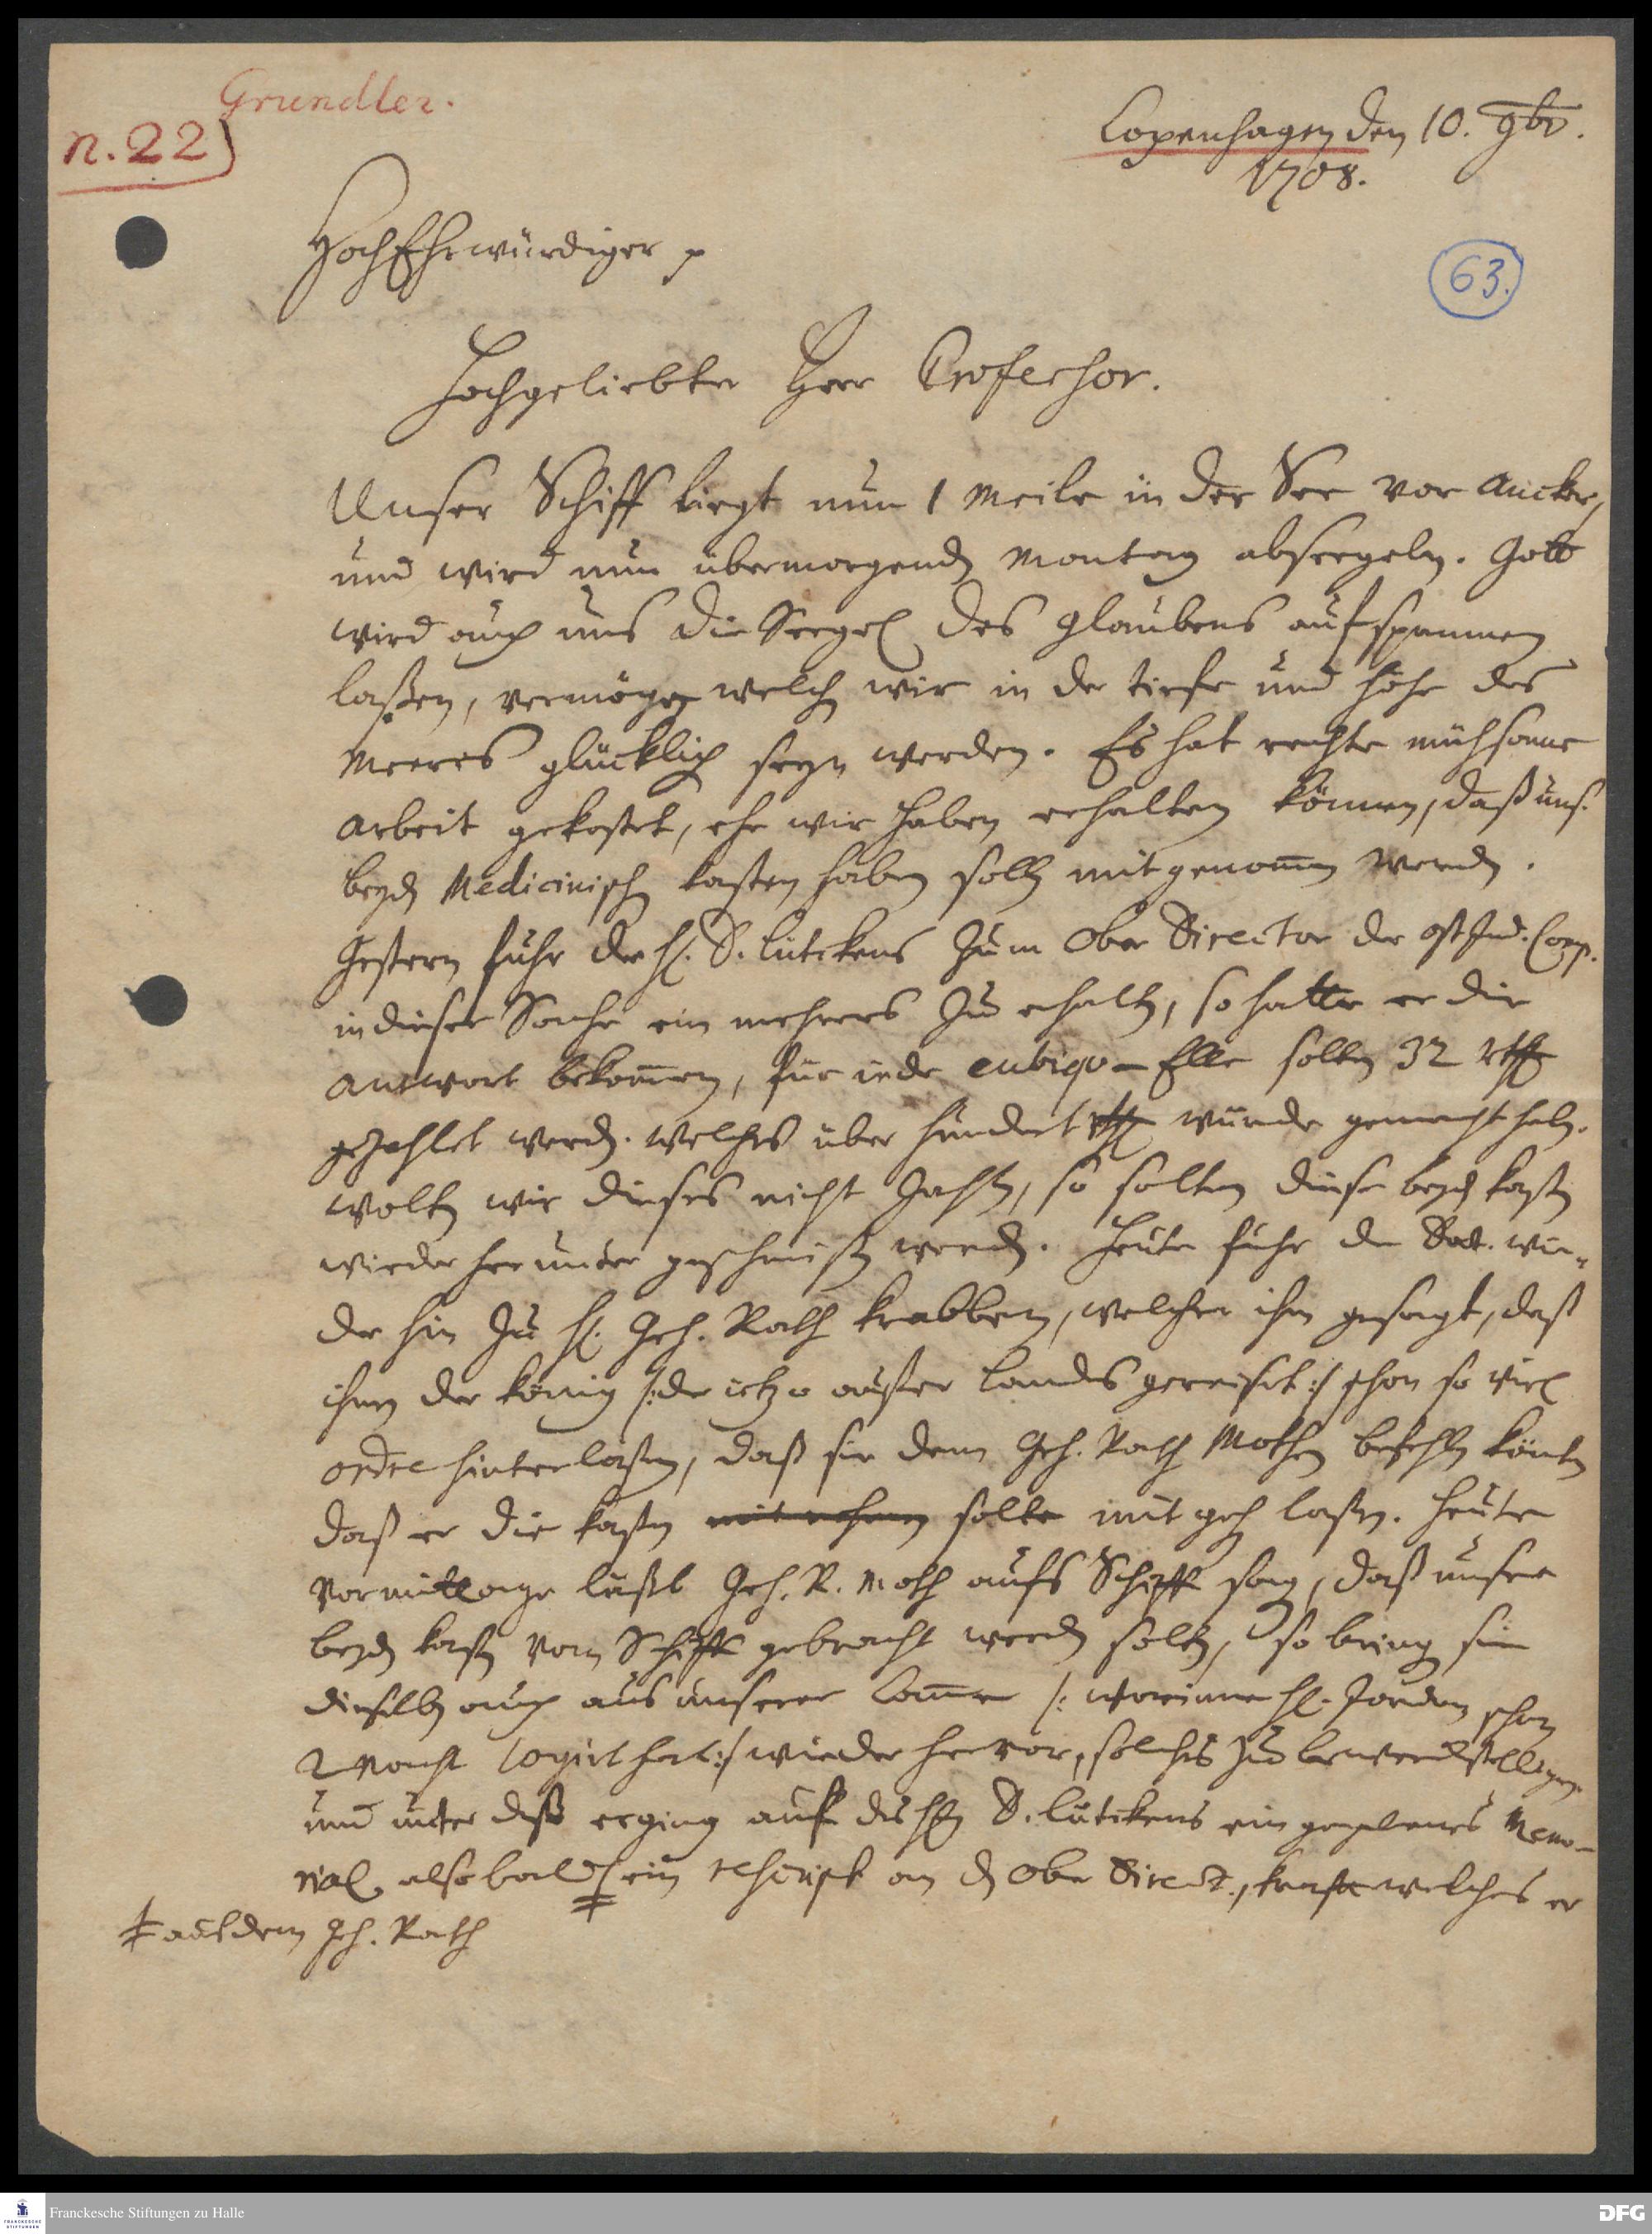 Grundler.
n. 22)
Copenhagen den 10. 9br.
1708.
63.
HochEhrwürdiger p
Hochgeliebter Herr Professor.
Unser Schiff liegt nun 1 Meile in der See vor Ancker,
und wird nun übermorgend Montag abseegeln. Gott
wird auch uns die Seegel des Glaubens aufspannen
laßen, vermöge welch wir in der tiefe und höhe des
Meeres glücklich seyn werden. Es hat rechte mühsame
arbeit gekostet, ehe wir haben erhalten können, daß uns.
beyd Medicinisch kasten haben solln mitgenommen werd.
Gestern fuhr der H. D. Lütckens zum Ober Director der Ost Ind. Comp.
in dieser Sache ein mehrers zu erhaltn, so hatte er die
antwort bekommen, für iede cubiqve-Elle solten 32 rthl
gezahlet werd. welches über hundert rthl würde gemacht habn.
woltn wir dieses nicht zahln, so solten diese beyd kastn
wieder herunter geschmißn werd. Heute fuhr der Doct. wie-
der hin zu H. Geh. Rath Krabben, welcher ihm gesagt, daß
ihnen der König /: der ietzo außer Landes gereiset :/ schon so viel
ordre hinterlaßen, daß sie dem Geh. Rath Mothen befehln könten
daß er die kastn mit nehmen solte mit gehn laßn. Heute
Vormittage läßt Geh. R. Moth aufs Schiff sagn, daß unsere
beyd kastn vom Schiff gebracht werd soltn, so bring sie
dieselbn auch aus unserer Cammer /: worinne H. Jordan schon
2 Nacht logirt hat :/ wieder hervor, solches zu bewerckstelligen.
und unter deß erging auf des Hn D. Lütckens eingegebenes Memo-
rial alsobald ‡ ein rescript an d Ober Direct., krafft welches er
‡ aus dem Geh. Rath
Franckesche Stiftungen zu Halle
DFG